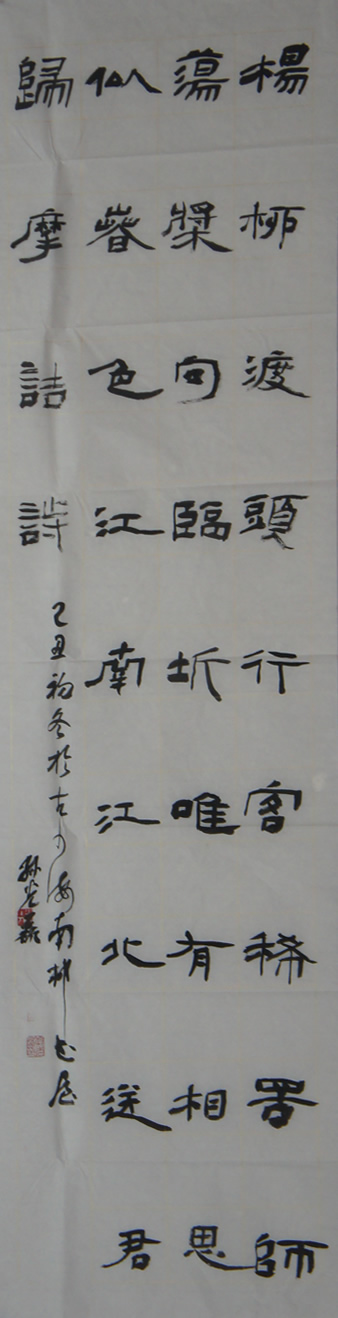 楊柳渡頭行客稀罟師
蕩槳向臨圻唯有相思
似春色江南江北送君
歸摩詰詩
乙丑初冬於古
海南
孫